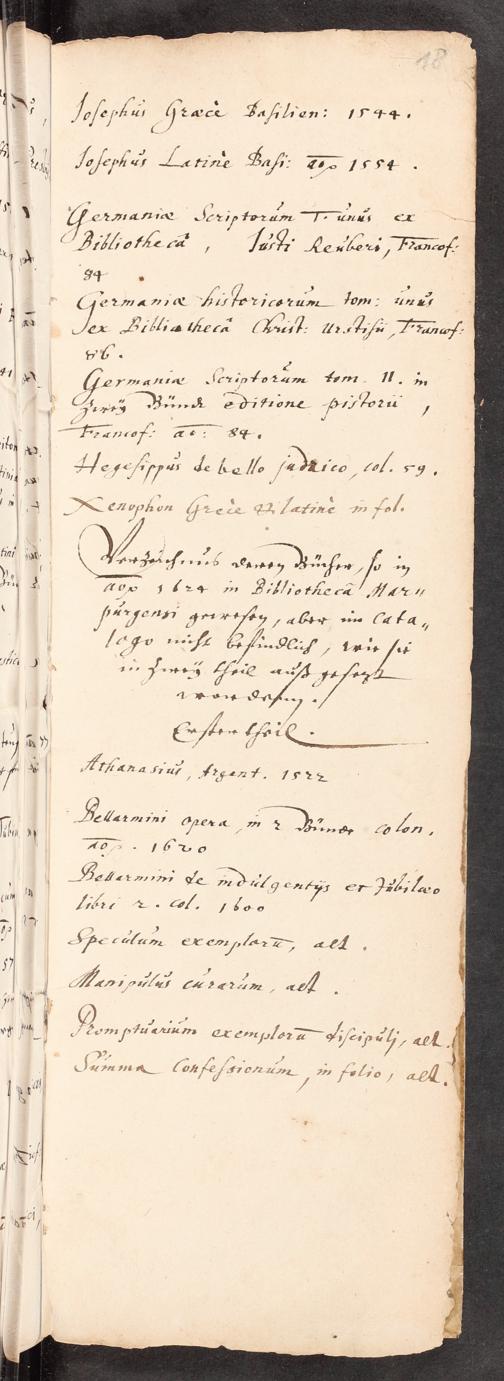 18
Josephus Græcè Basilien: 1544.
Josephus Latinè Basi: aō 1554.
Germaniæ Scriptorum T. unus ex
Bibliothecâ, Justi Reuberi, Francof:
84
Germaniæ historicorum tom: unus
ex Bibliothecâ Christ: Urstisii, Francof:
86.
Germaniæ Scriptorum tom. II. in
zweÿ Bände editione pistorii,
Francof: aō: 84.
Hegesippus de bello judaico, col. 59.
Xenophon Grecè et latinè in fol.
Verzeichnus deren Bücher, so in
aō 1624 in Bibliothecâ Mar„
purgensi gewesen, aber im Cata„
logo nicht befindlich, wie sie
in zweÿ theil auß gesetzt
worden.
Erster theil.
Athanasius, Argent. 1522
Bellarmini opera, in 2 Bände colon.
aō. 1620
Bellarmini de indulgentijs et Jubilæo
libri 2. col. 1600
Speculum exemplorū, alt.
Manipulus curarum, alt.
Promptuarium exemplorū discipulj, alt.
Summa Confessionum, in folio, alt.